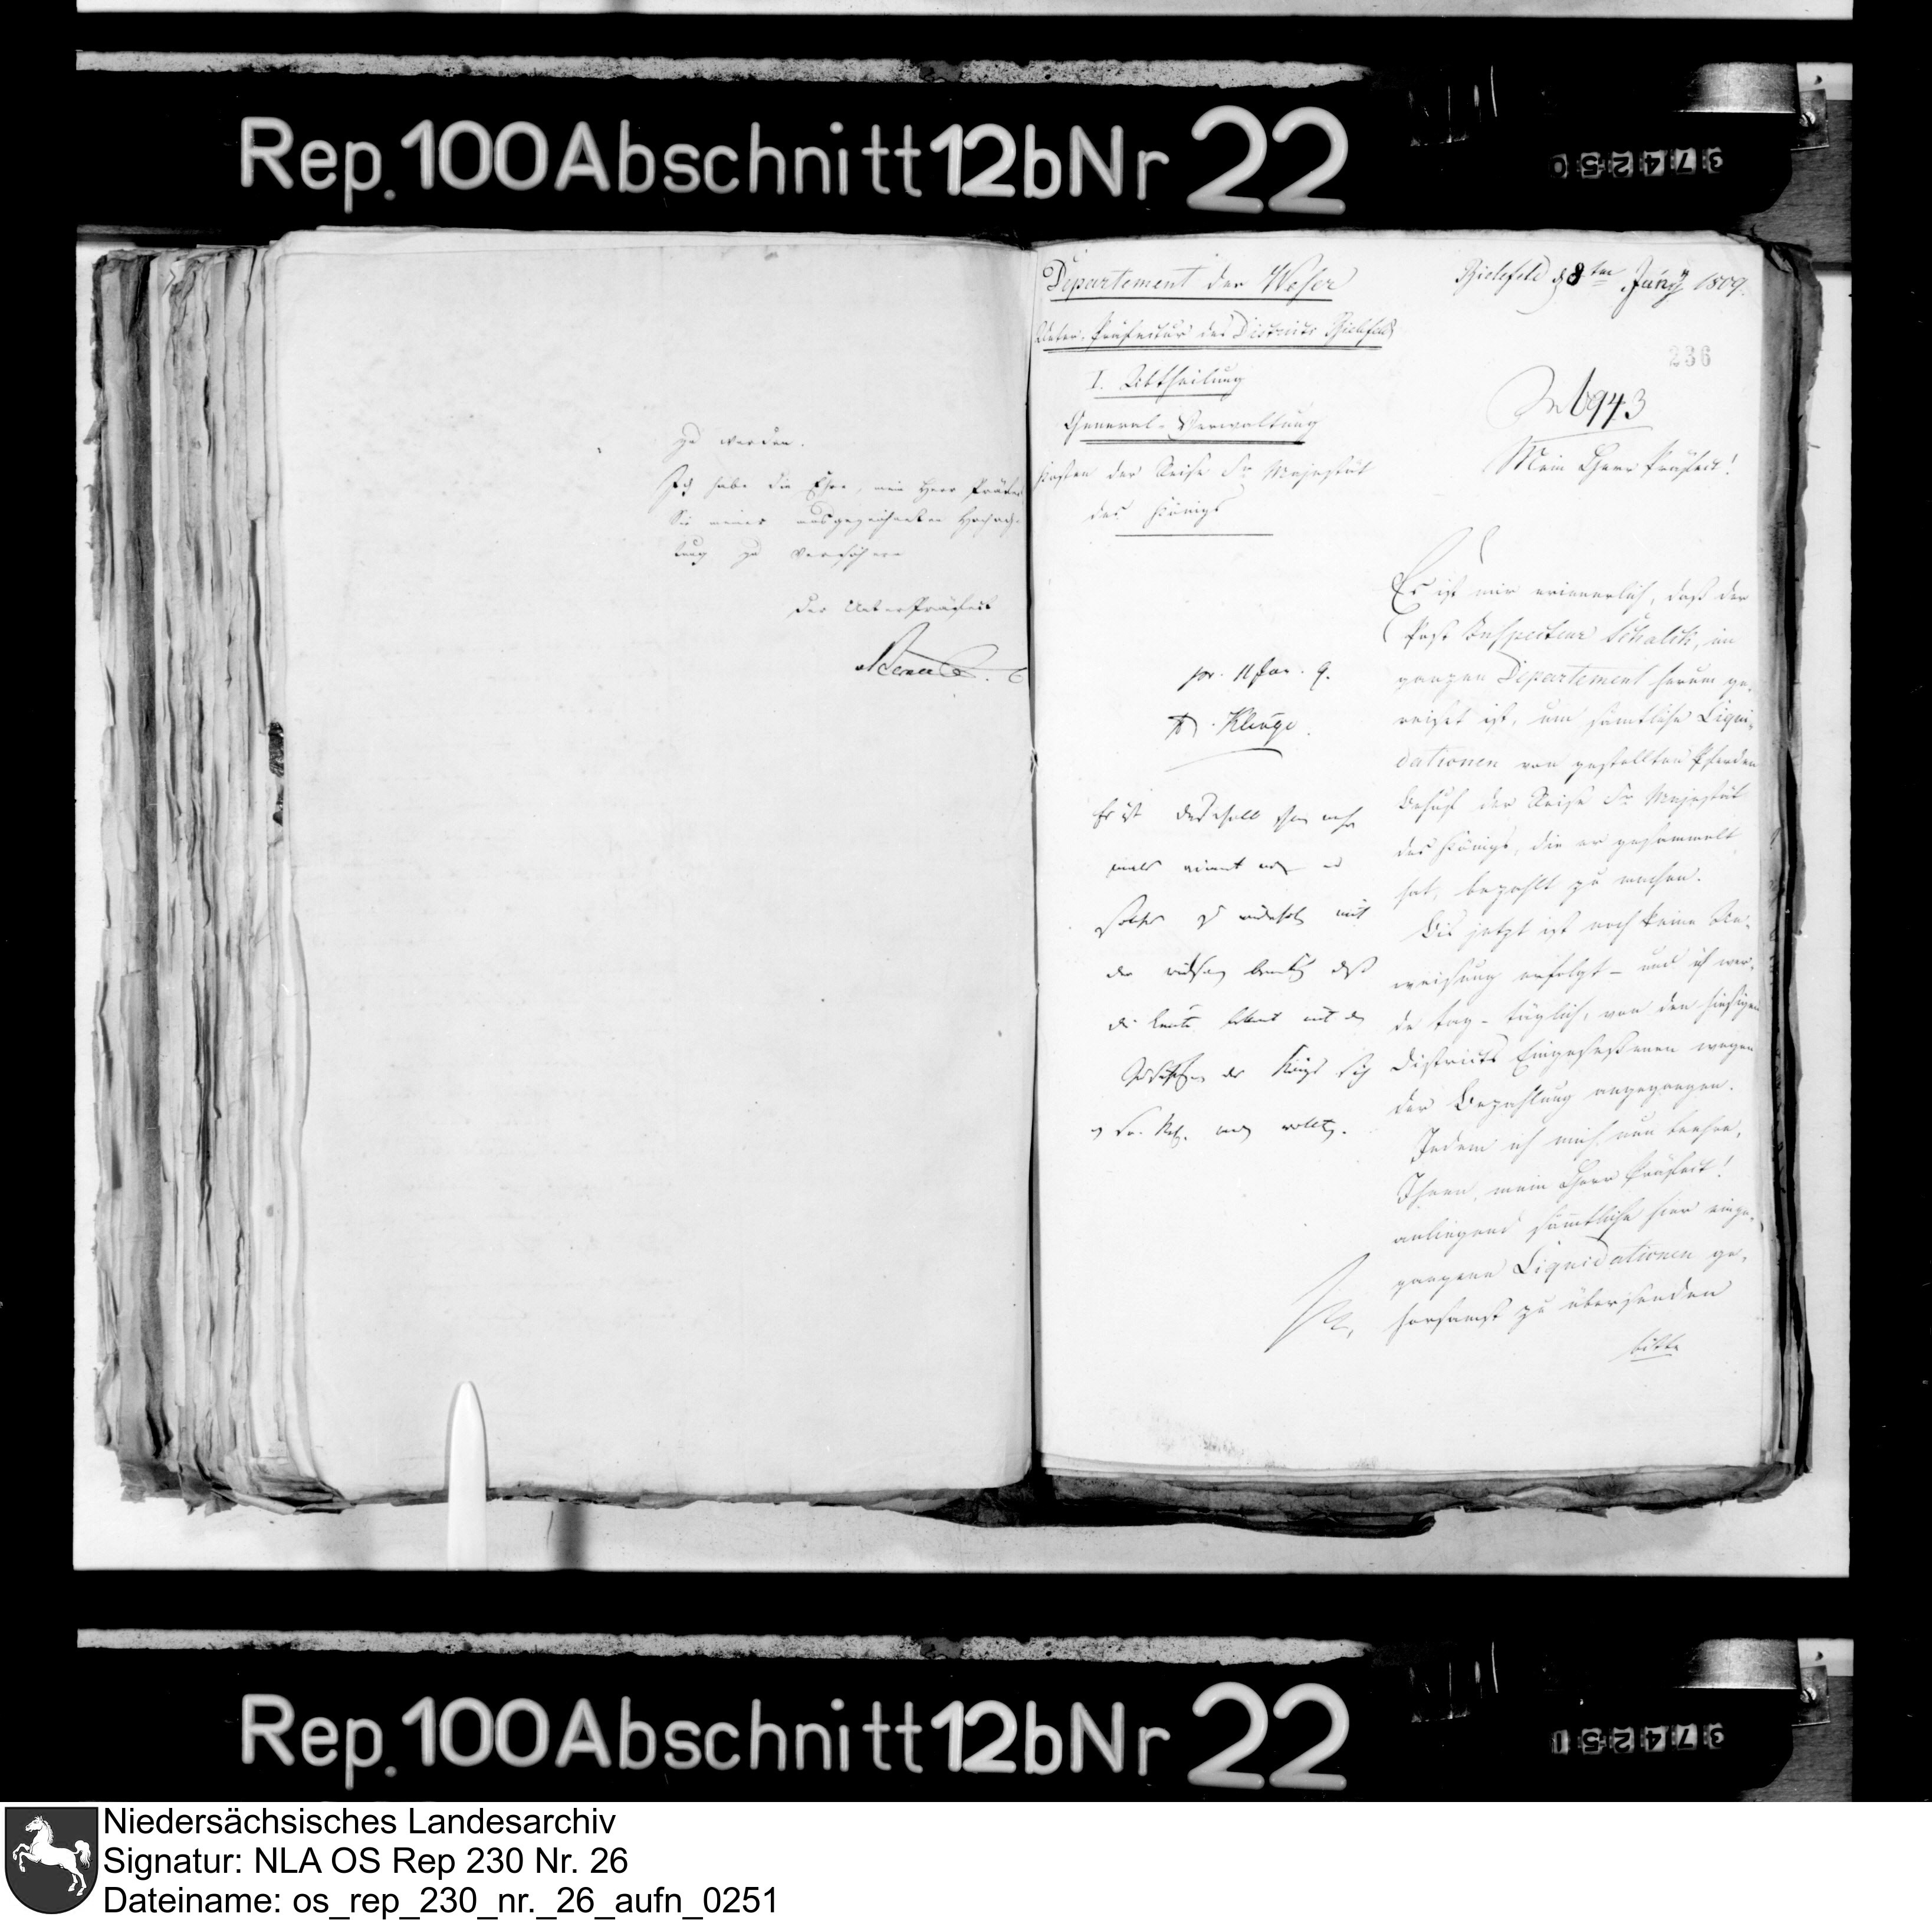 Rep. 100 Abschnitt 12b Nr 22
zu werden.
Ich habe die Ehre, mein Herr Präfect
Sie meiner ausgezeichneten Hochach-
tung zu versichern
Der Unterpräfect
Departement der Weser
Unter-Präfectur des Districts Bielefeld
I. Abtheilung
General-Verwaltung
Kosten der Reise Sr Majestät
des Königs
Bielefeld d 8ten Juny 1809.
236
6943
Mein Herr Präfect!
pr. 11 Jun. 9.
Kluge.
Es ist
die Leute
des Königs sich
Es ist mir erinnerlich, daß der
Post Inspecteur Schalch, im
ganzen Departement herum ge-
reiset ist, um sämtliche Liqui-
dationen von gestellten Pferden
Behuf der Reise Sr Majestät
des Königs, die er gesammelt
hat, bezahlt zu machen.
Bis jetzt ist noch keine An-
weisung erfolgt - und ich wer-
de tag-täglich, von den hiesigen
Districts Eingesessenen wegen
der Bezahlung angegangen.
Indem ich mich nun beehre,
Ihnen, mein Herr Präfect!
anliegend sämtliche hier einge-
gangene Liquidationen ge-
horsamst zu übersenden
bitte
Rep. 100 Abschnitt 12b Nr 22
Niedersächsisches Landesarchiv
Signatur: NLA OS Rep 230 Nr. 26
Dateiname: os_rep_230_nr._26_aufn_0251